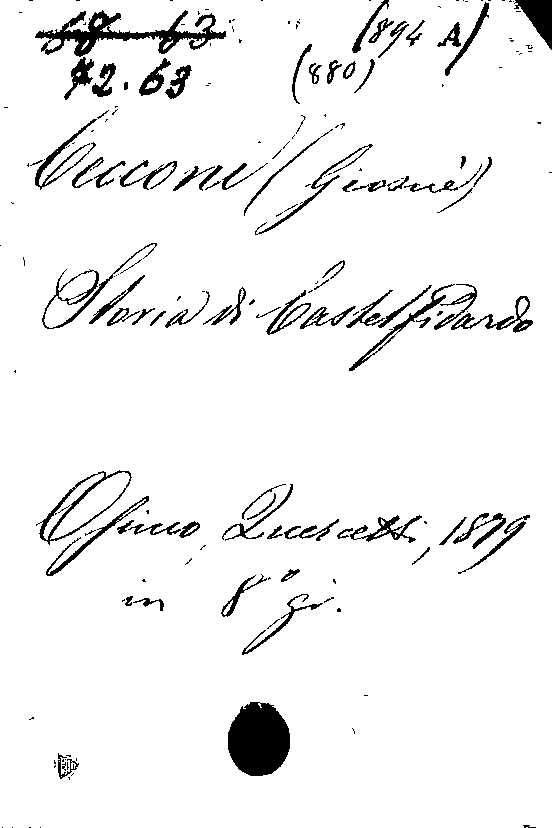 58 - 63 (894 A)
72.63 (880)
Cecconi (Giosuè)
Storia di Castelfidardo
Osimo, Quercetti, 1879
in 8° gr.